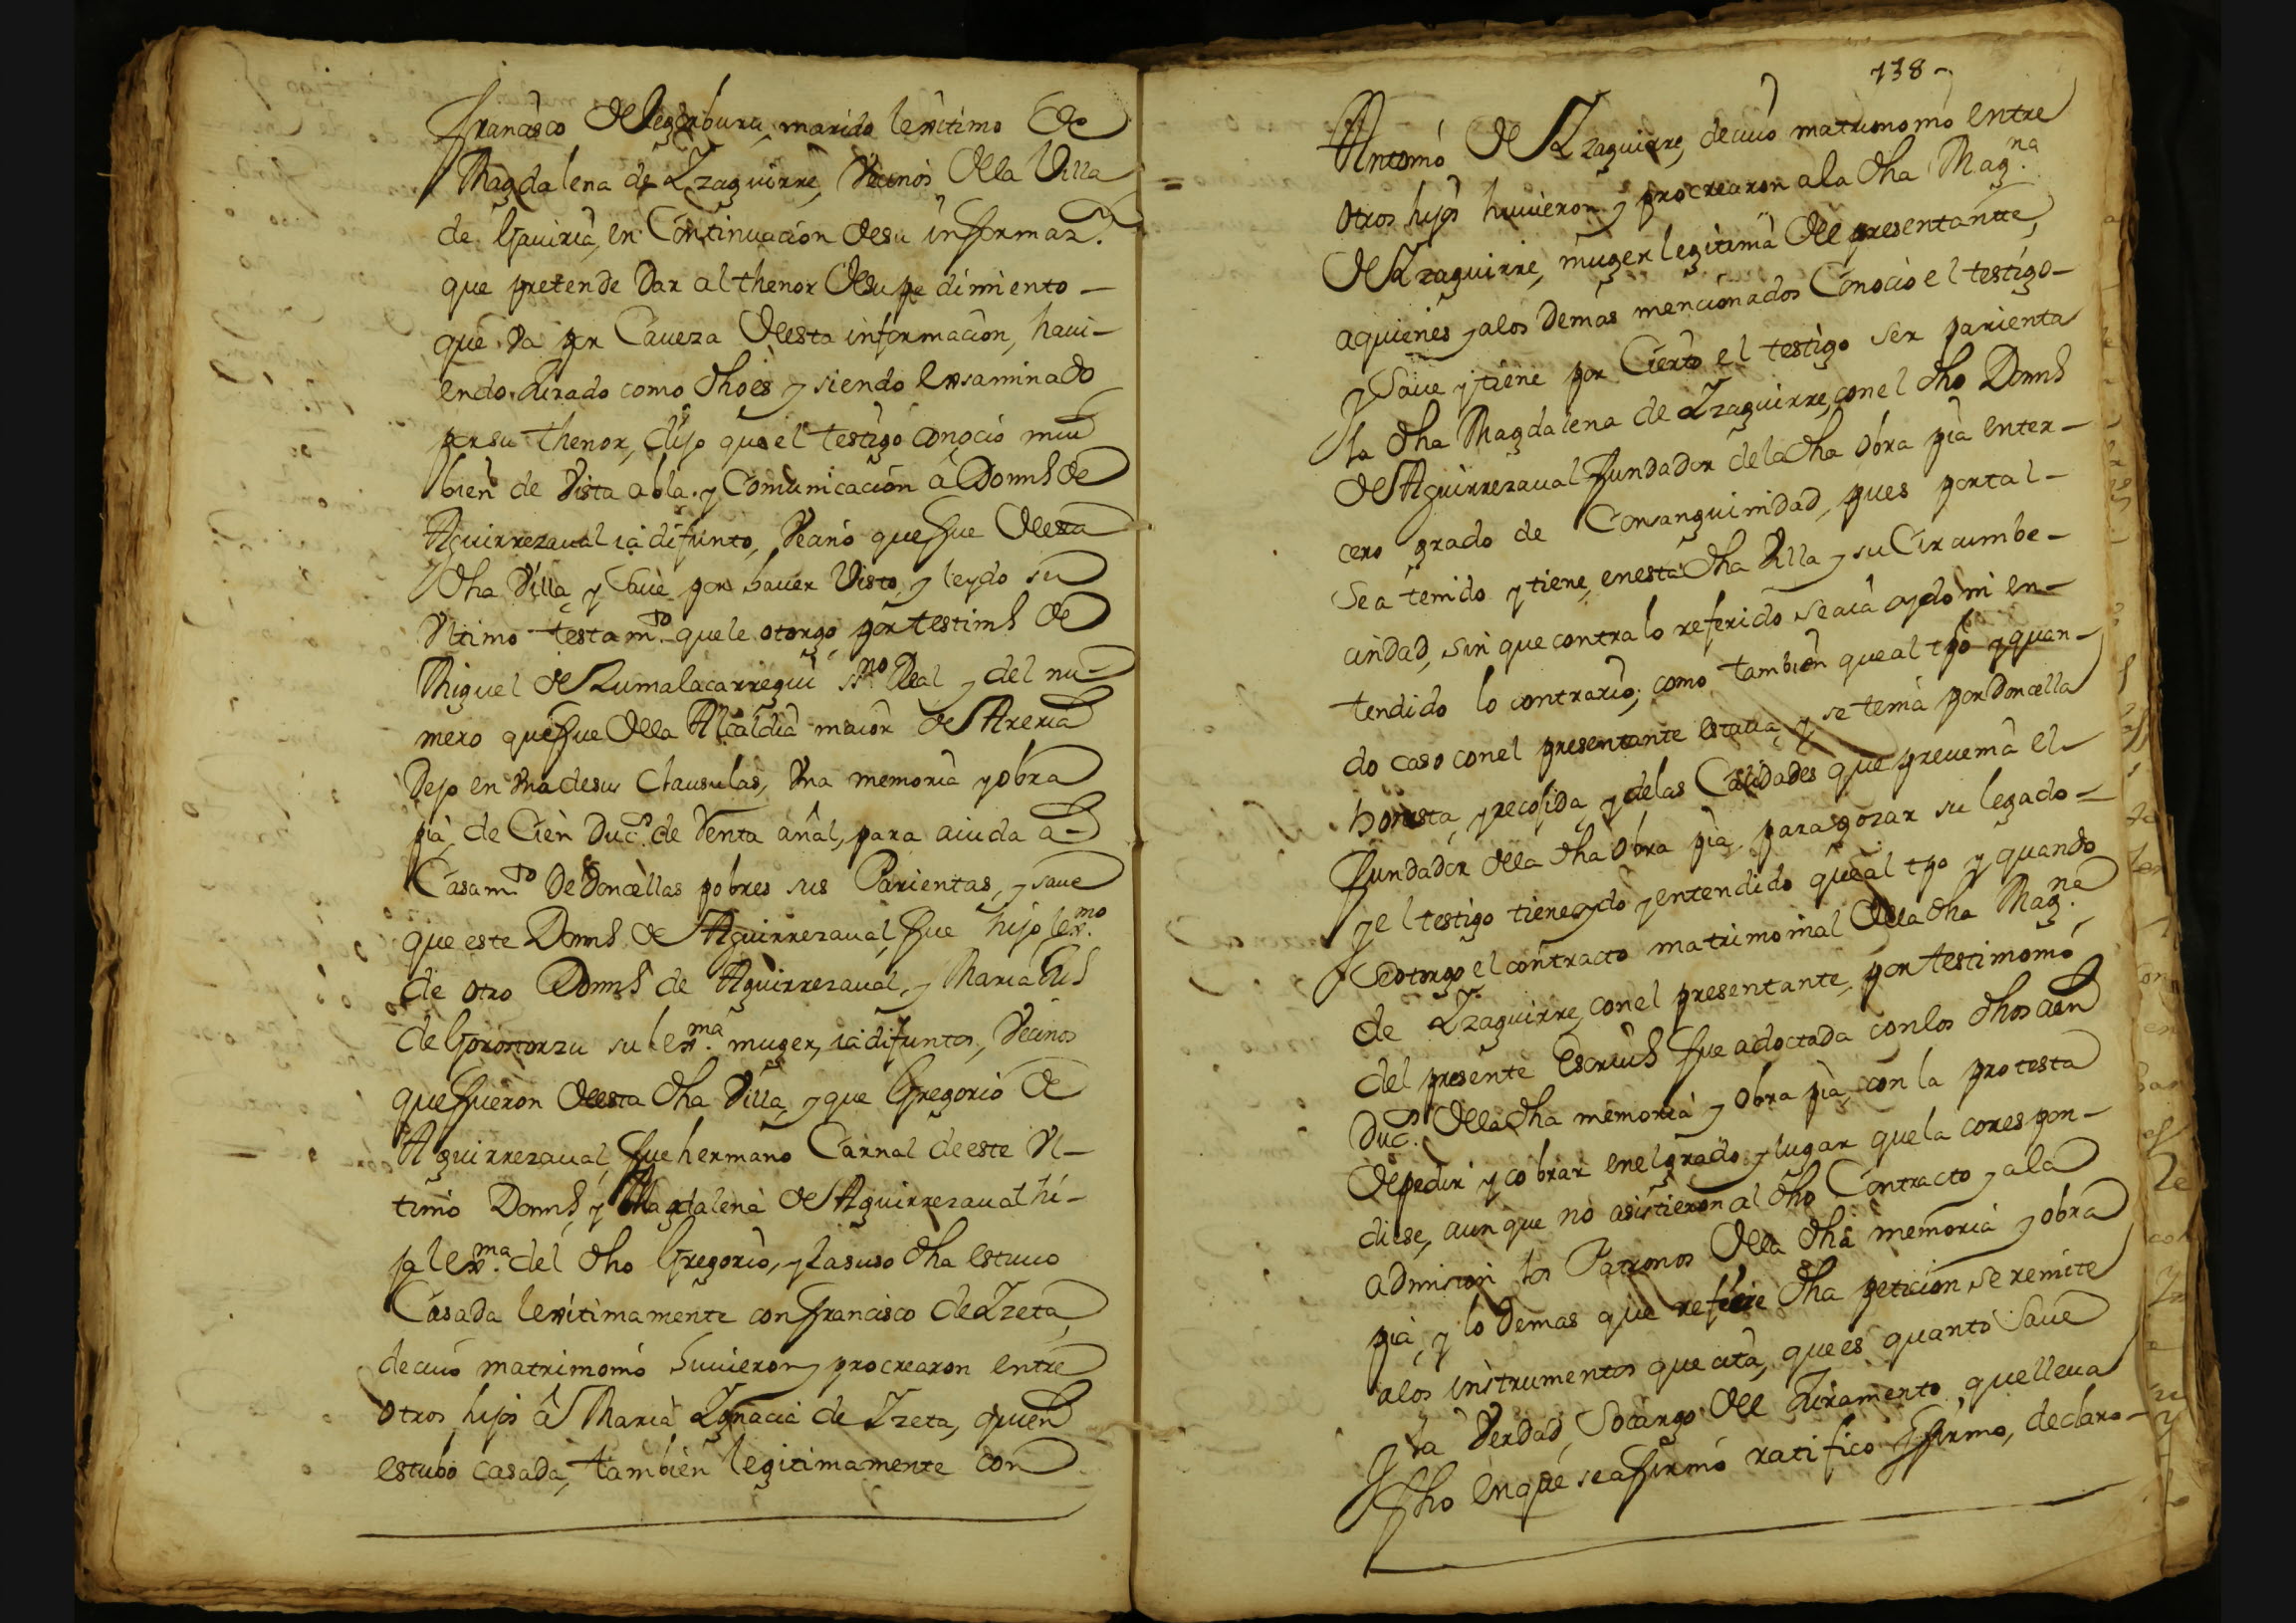 Francisco de Legorburu, marido lexitimo de
Magdalena de Yzaguirre, Vecinos de la Villa
de Gauiria, en Continuacion de su informaz.n
que pretende dar al thenor de su pedimiento
que va por Caueza de esta informacion, haui-
endo Jurado como dho es y siendo exsaminado
por su thenor, dijo que el testigo conocio mui
bien de Vista abla y Comunicacion a Doms de
Aguirrezaual ia difunto, Vecino que fue de esta
dha Villa y Saue por hauer Visto, y leydo su
Vltimo testam.to que le otorgo por testims de
Miguel de Zumalacarregui ss.no Real y del nu-
mero que fue de la Alcaldia maior de Areria
Dejo en Vna de sus Clausulas, Vna memoria y obra
pia, de Cien Duc.s de Renta añal, para aiuda a
Casam.to De Doncellas pobres sus Parientas, y saue
que este Doms de Aguirrezaual, fue hijo lex.mo
de otro Doms de Aguirrezaual, y Maria
de Gorostorzu su lex.ma muger, ia difuntos, Vecinos
que fueron de esta dha Villa, y que Gregorio de
Aguirrezaual, fue hermano Carnal de este Vl-
timo Doms, y Magdalena de Aguirrezaual hi-
ja lex.ma del dho Gregorio, y la suso dha estuuo
Casada lexitimamente con Francisco de Yzeta,
de cuio matrimonio huuieron y procrearon entre
otros hijos a Maria Ygnacia de Yzeta, quien
estubo casada, tambien legitimamente con
138
Antonio de Yzaguirre, de cuio matrimonio entre
otros hijos huuieron y procrearon a la dha Mag.na
de Yzaguirre, muger legitima del presentante,
a quienes y a los demas mencionados Conocio el testigo
y Saue y tiene por Cierto el testigo ser parienta
la dha Magdalena de Yzaguirre, con el dho Doms
de Aguirrezaual fundador de la dha obra pia en ter-
cero grado de Consanguinidad, pues por tal
Se a tenido y tiene, en esta dha Villa y su Circumbe-
cindad, sin que contra lo referido se aia oydo ni en-
tendido lo contrario; como tambien que al tpo y quan-
do caso con el presentante estaua, y se tenia por Doncella
honesta, y recojida, y de las Calidades que preuenia el
fundador de la dha obra pia, para gozar su legado
y el testigo tiene oydo y entendido que al tpo y quando
Se otorgo, el contracto matrimonial de la dha Mag.na
de Yzaguirre, con el presentante, por testimonio
del presente Escrius fue adoctada con los dhos cien
Duc.s de la dha memoria y obra pia, con la protesta
de pedir y cobrar en el grado y lugar que la correspon-
diese, aunque no asistieron al dho Contracto y a la
admision los Patronos de la dha memoria y obra
pia, y lo demas que refiere dha peticion se remite
a los instrumentos que cita, que es quanto Saue
y la Verdad, Socargo del Juramento, que lleua
fho en que se afirmo ratifico y firmo, declaro